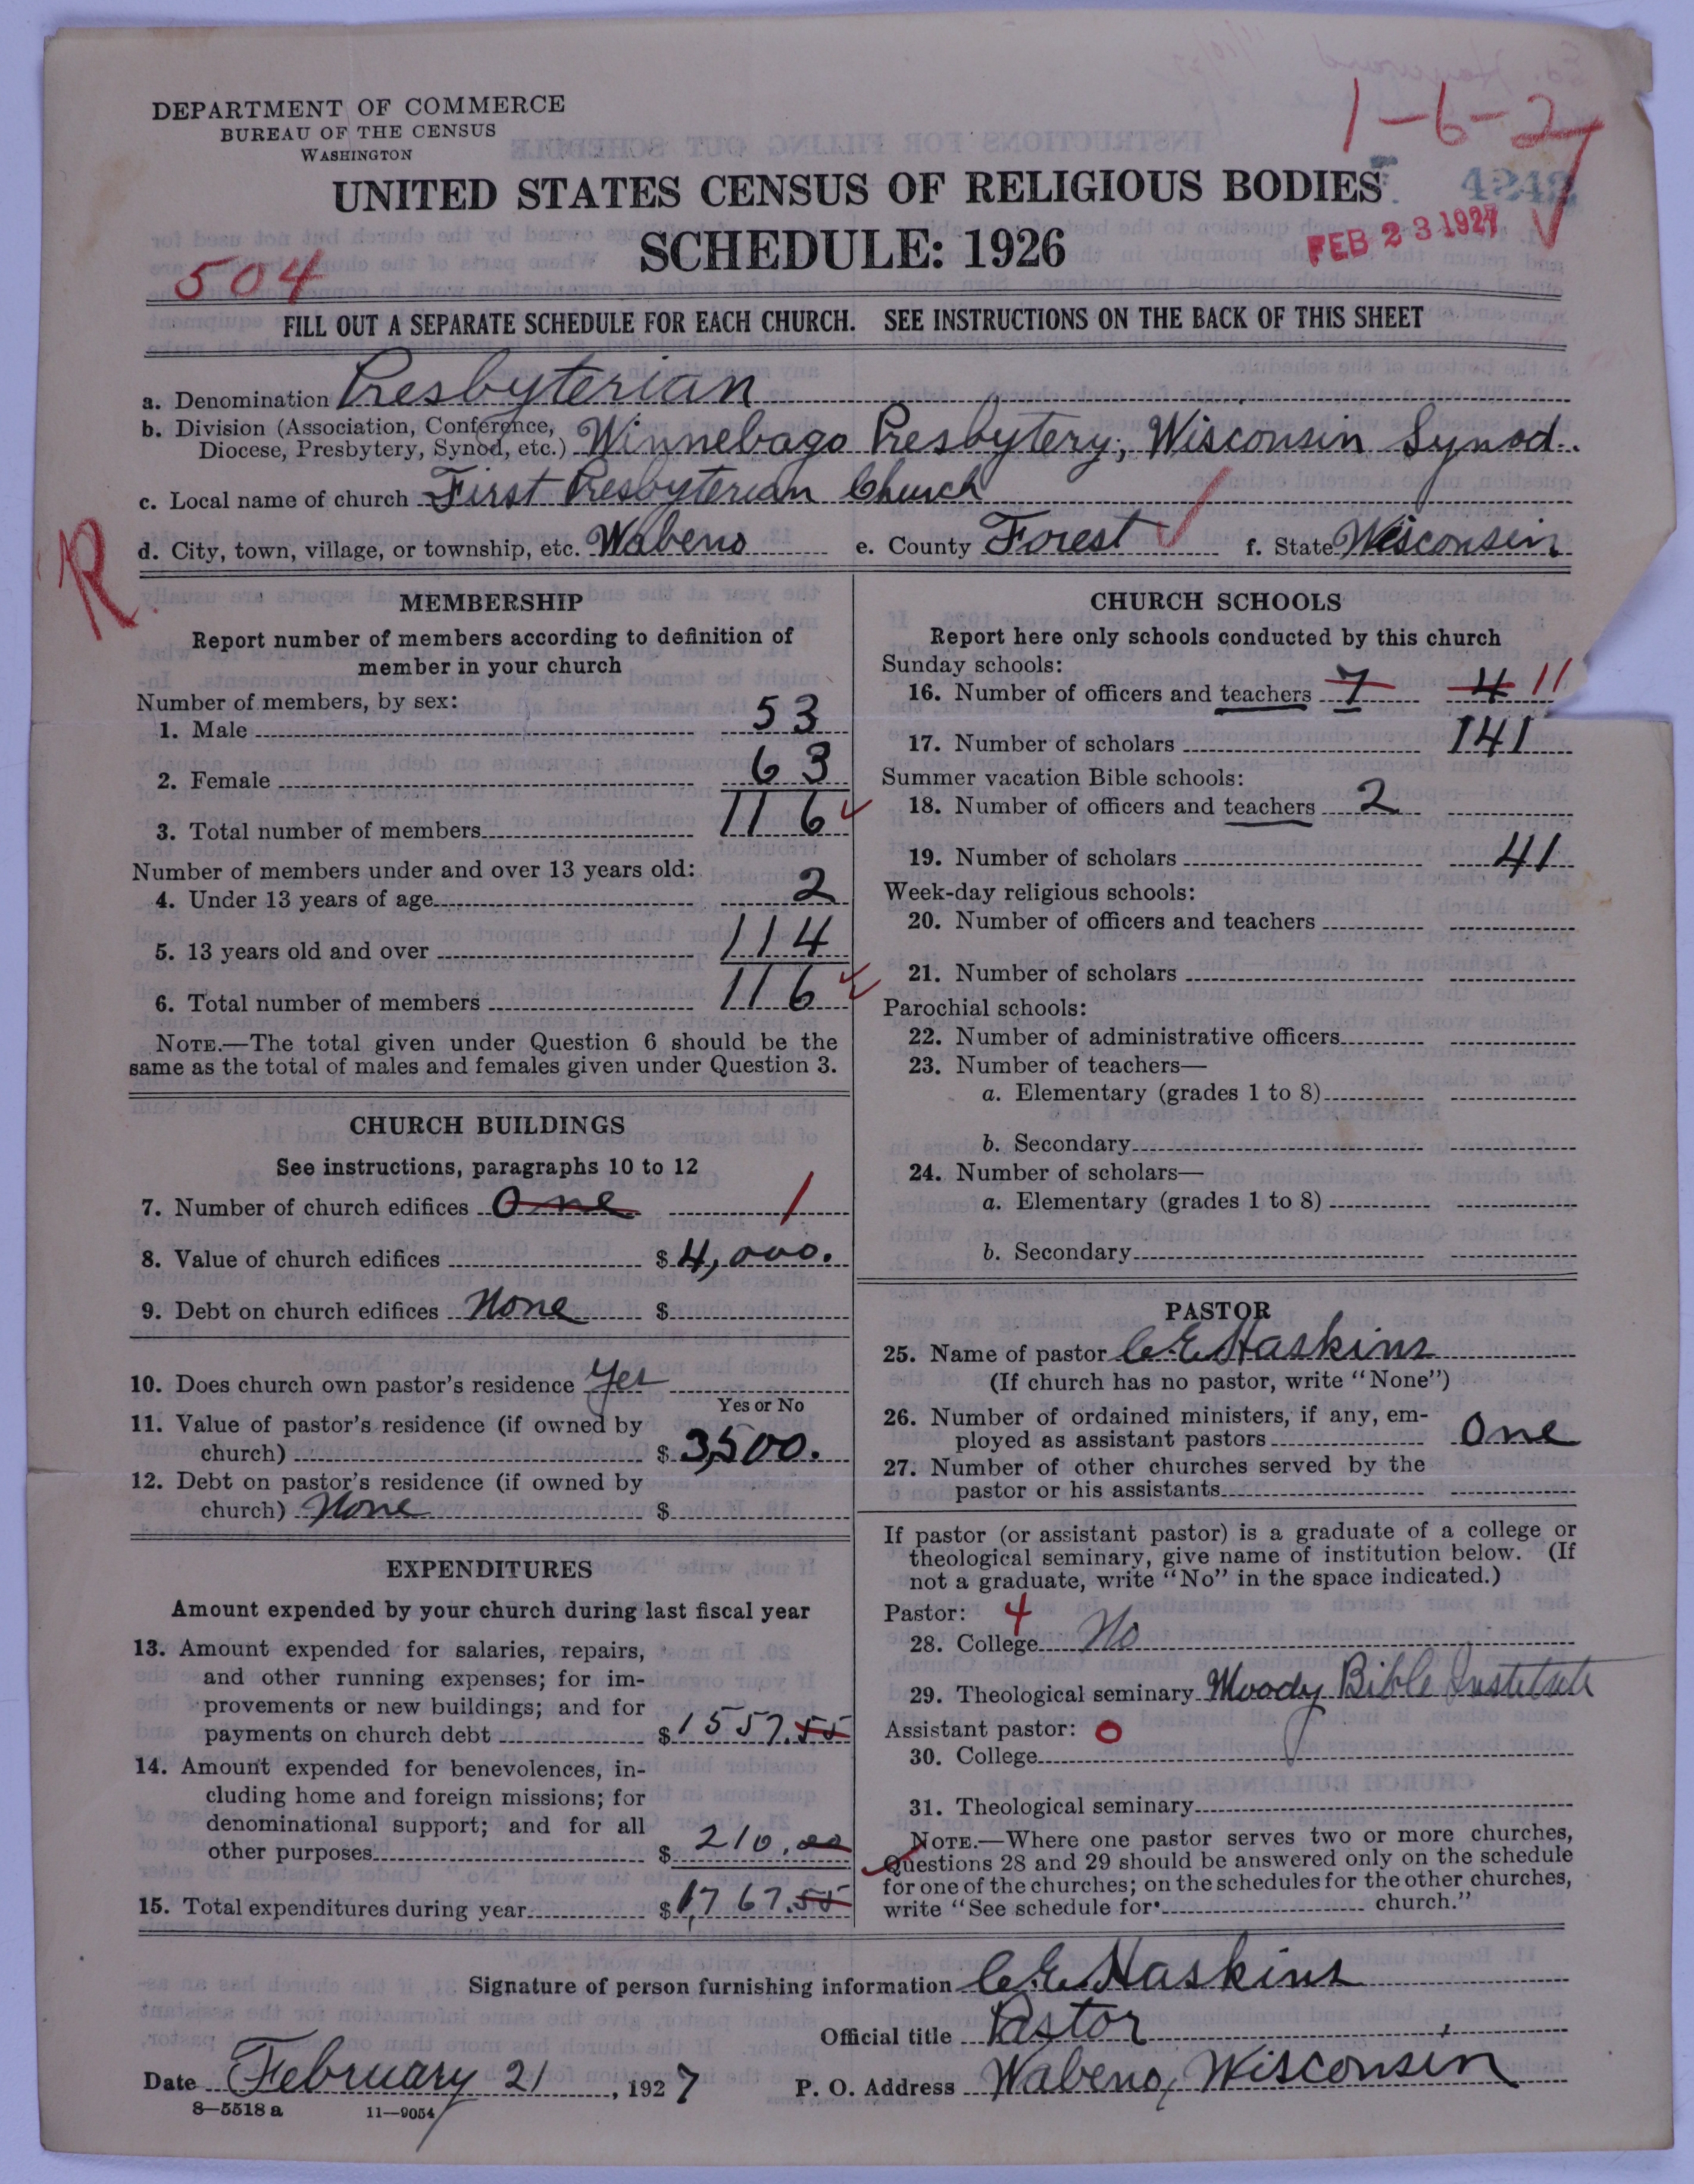 1-6-2
DEPARTMENT OF COMMERCE
BUREAU OF THE CENSUS
WASHINGTON
UNITED STATES CENSUS OF RELIGIOUS BODIES
SCHEDULE: 1926
FEB 23 1927
504
FILL OUT A SEPARATE SCHEDULE FOR EACH CHURCH. SEE INSTRUCTIONS ON THE BACK OF THIS SHEET
a. Denomination Presbyterian
b. Division (Association, Conference,
Diocese, Presbytery, Synod, etc.) Winnebago Presbytery; Wisconsin Synod.
c. Local name of church First Presbyterian Church
d. City, town, village, or township, etc. Wabeno e. County Forest f. State Wisconsin
R
MEMBERSHIP
Report number of members according to definition of
member in your church
Number of members, by sex:
1. Male 53
2. Female 63
3. Total number of members 116
Number of members under and over 13 years old:
4. Under 13 years of age 2
5. 13 years old and over 114
6. Total number of members 116
NOTE.—The total given under Question 6 should be the
same as the total of males and females given under Question 3.
CHURCH BUILDINGS
See instructions, paragraphs 10 to 12
7. Number of church edifices One 1
8. Value of church edifices $ 4,000.
9. Debt on church edifices None $
10. Does church own pastor's residence Yes
Yes or No
11. Value of pastor's residence (if owned by
church) $ 3,500.
12. Debt on pastor's residence (if owned by
church) None $
EXPENDITURES
Amount expended by your church during last fiscal year
13. Amount expended for salaries, repairs,
and other running expenses; for im-
provements or new buildings; and for
payments on church debt $ 1557.55
14. Amount expended for benevolences, in-
cluding home and foreign missions; for
denominational support; and for all
other purposes $ 210.00
15. Total expenditures during year $ 1,767.55
CHURCH SCHOOLS
Report here only schools conducted by this church
Sunday schools:
16. Number of officers and teachers 7 4 11
17. Number of scholars 141
Summer vacation Bible schools:
18. Number of officers and teachers 2
19. Number of scholars 41
Week-day religious schools:
20. Number of officers and teachers
21. Number of scholars
Parochial schools:
22. Number of administrative officers
23. Number of teachers—
a. Elementary (grades 1 to 8)
b. Secondary
24. Number of scholars—
a. Elementary (grades 1 to 8)
b. Secondary
PASTOR
25. Name of pastor C.E. Haskins
(If church has no pastor, write "None")
26. Number of ordained ministers, if any, em-
ployed as assistant pastors One
27. Number of other churches served by the
pastor or his assistants
If pastor (or assistant pastor) is a graduate of a college or
theological seminary, give name of institution below. (If
not a graduate, write "No" in the space indicated.)
Pastor: 4
28. College No
29. Theological seminary Moody Bible Institute
Assistant pastor: 0
30. College
31. Theological seminary
NOTE.—Where one pastor serves two or more churches,
Questions 28 and 29 should be answered only on the schedule
for one of the churches; on the schedules for the other churches,
write "See schedule for church."
Signature of person furnishing information C.E. Haskins
Official title Pastor
Date February 21, 1927 P. O. Address Wabeno, Wisconsin
8—5518 a 11—9054